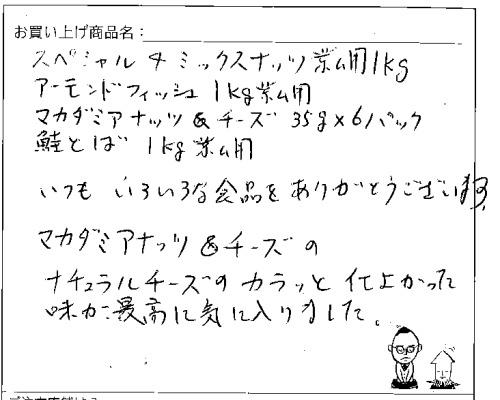 お買い上げ商品名：
スペシャル4ミックスナッツ業ム用1kg
アーモンドフィッシュ 1kg業ム用
マカダミアナッツ&チーズ 35g×6パック
鮭とば 1kg業ム用
いつも いろいろな食品をありがとうございます。
マカダミアナッツ&チーズの
ナチュラルチーズの カラッと
味が最高に気に入りました。